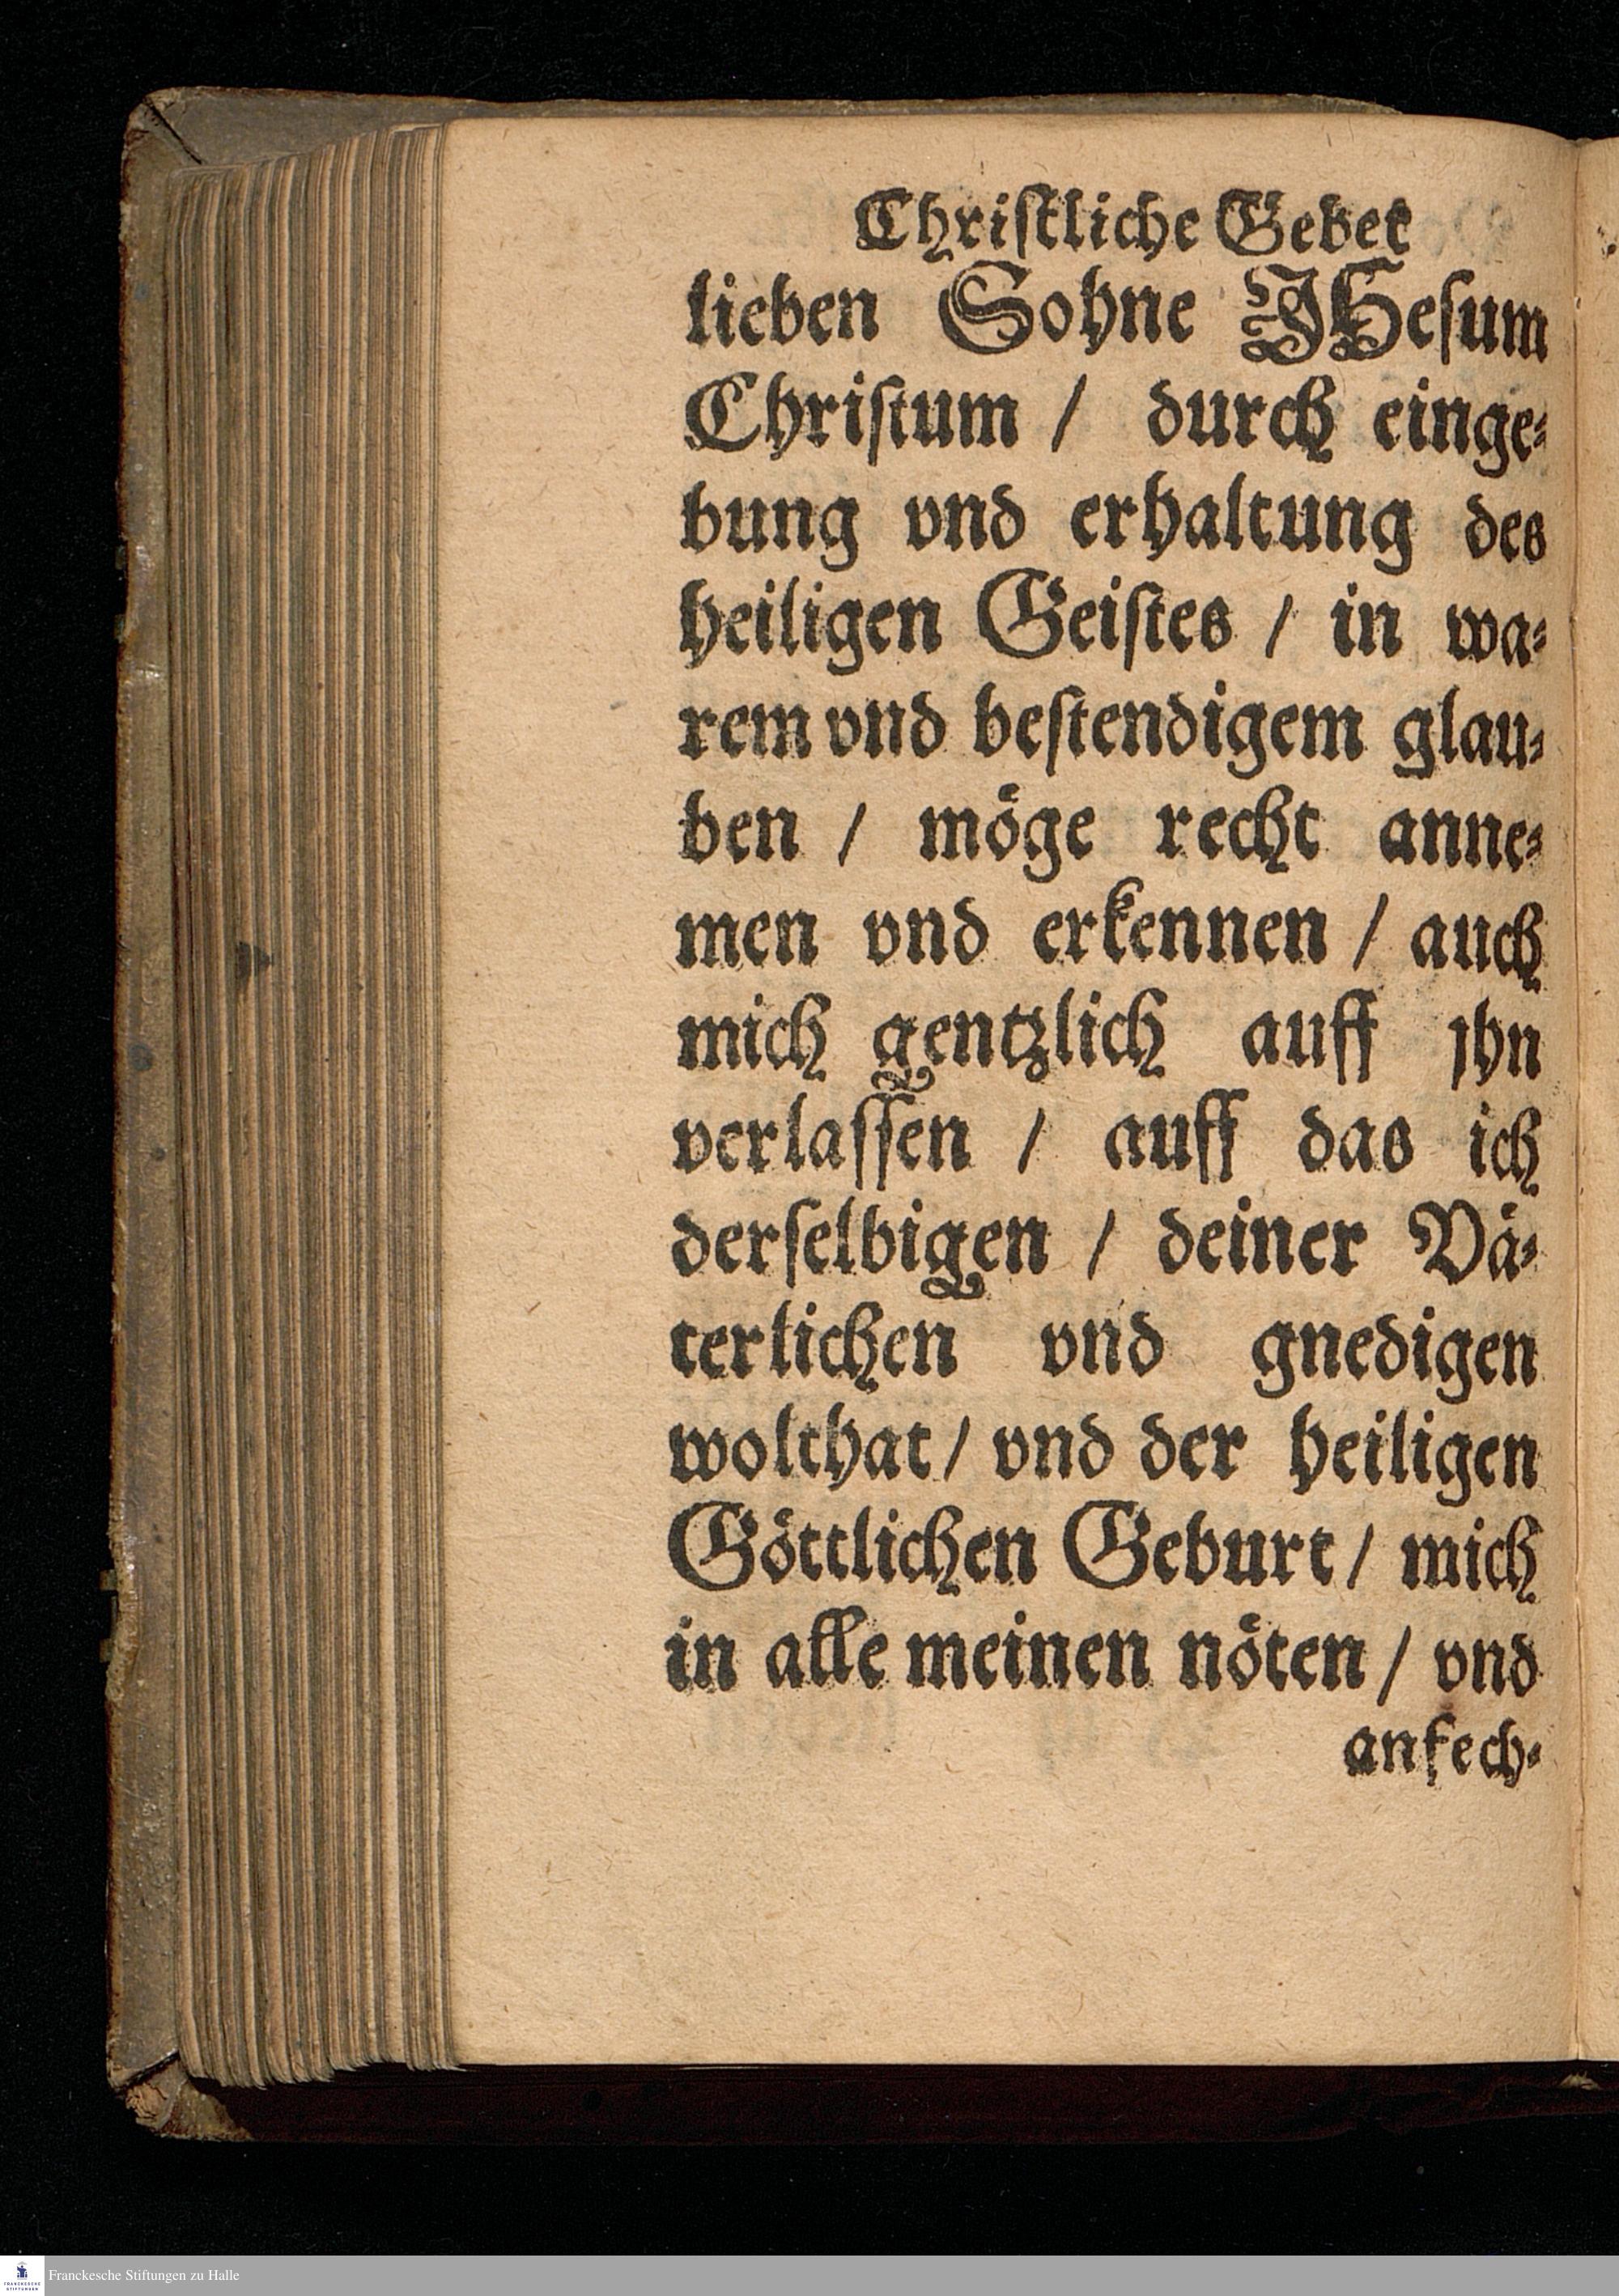 Chriſtliche Gebet
lieben Sohne JHeſum
Chriſtum / durch einge⸗
bung vnd erhaltung des
heiligen Geiſtes / in wa⸗
rem vnd beſtendigem glau⸗
ben / möge recht anne⸗
men vnd erkennen / auch
mich gentzlich auff jhn
verlaſſen / auff das ich
derſelbigen / deiner Vä⸗
terlichen vnd gnedigen
wolthat / vnd der heiligen
Göttlichen Geburt / mich
in alle meinen nöten / vnd
anfech⸗
FRANCKESCHE
STIFTUNGEN
Franckesche Stiftungen zu Halle